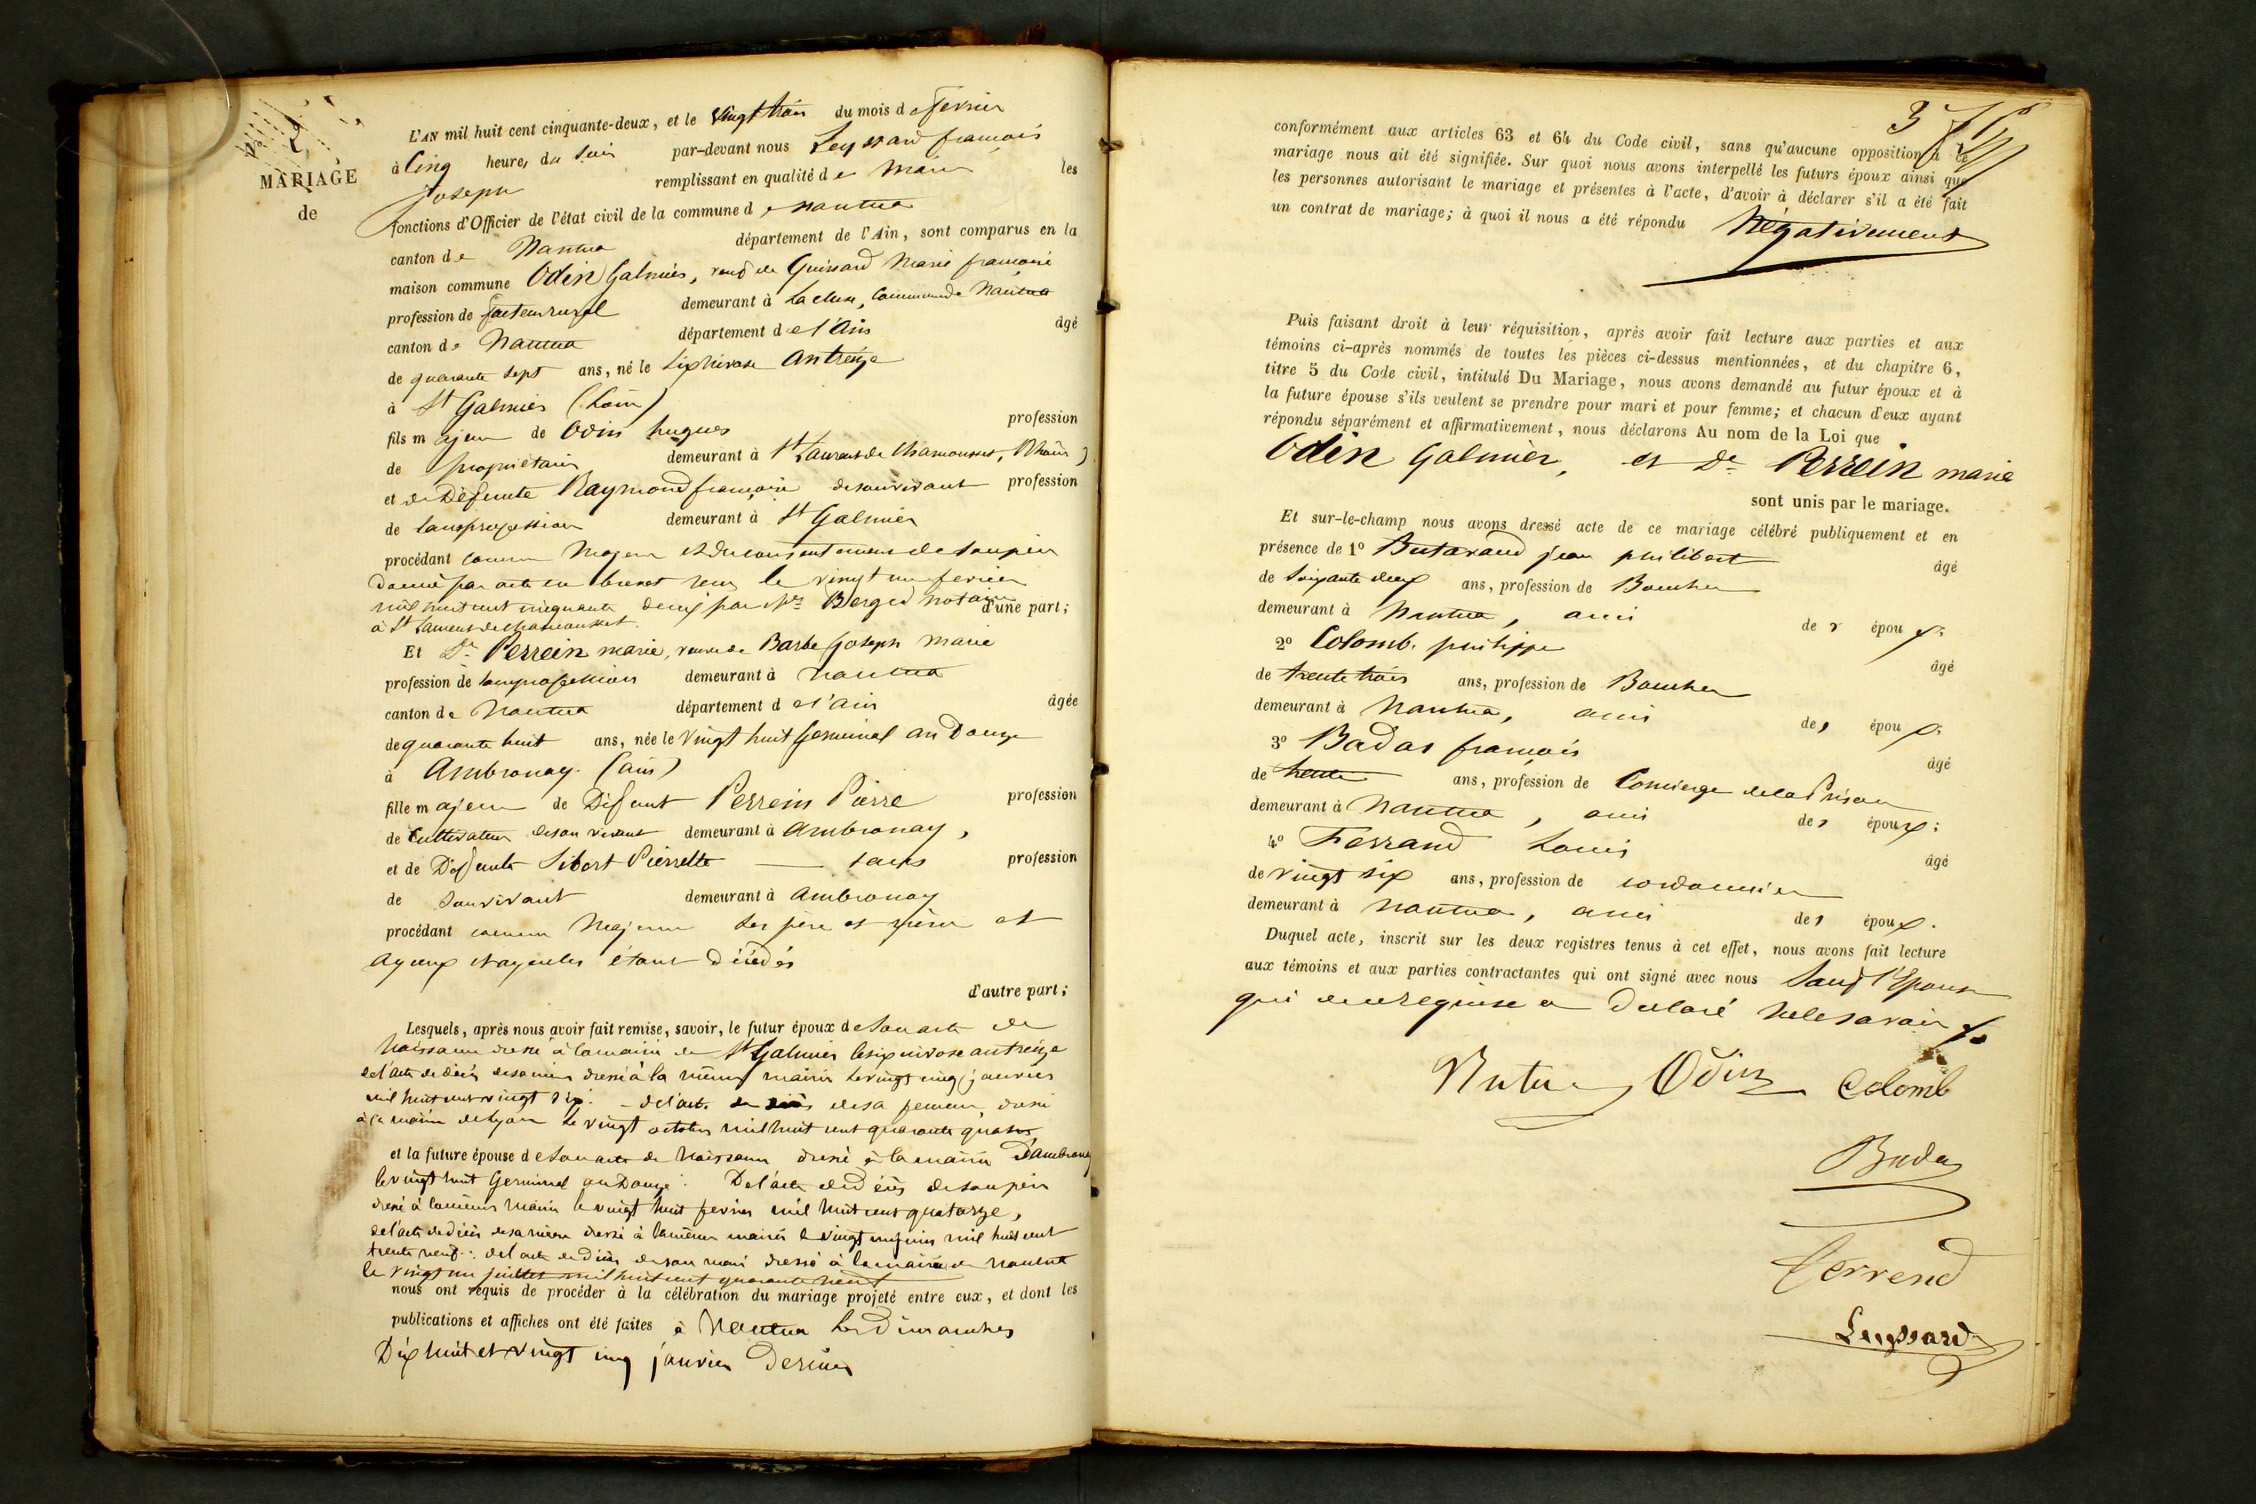 MARIAGE
de
L'AN mil huit cent cinquante-deux, et le vingt trois du mois de fevrier
à Cinq heures du soir par-devant nous Leyssard françois
Joseph remplissant en qualité de Maire les
fonctions d'Officier de l'état civil de la commune de nantua
canton de Nantua département de l'Ain, sont comparus en la
maison commune Odin Galmier, veuf de Guissard Marie françoise
profession de facteur rural demeurant à La cluse, Commune de Nantua
canton de Nantua département de l'Ain âgé
de quarante sept ans, né le six nivose an treize
à St Galmier (Loire)
fils majeur de Odin hugues profession
de propriétaire demeurant à St Laurent de Chamousset, Rhône)
et de Défunte Raymond françoise de son vivant profession
de sans profession demeurant à St Galmier
procédant comme Majeur et du consentement de son père
donné par acte en brevet reçu le vingt un fevrier
mil huit cent cinquante deux par Me Berger notaire d'une part;
à St Laurent de Chamousset.
Et De Perrein marie, veuve de Barbe Joseph Marie
profession de sans profession demeurant à Nantua
canton de Nantua département de l'Ain âgée
de quarante huit ans, née le vingt huit Germinal an Douze
à Ambronay (ain)
fille majeure de Défunt Perrein Pierre profession
de Cultivateur de son vivant demeurant à Ambronay,
et de Défunte Sibert Pierrette — sans profession
de son vivant demeurant à Ambronay
procédant comme Majeure ses père et mère et
ayeux et ayeules étant décédés
d'autre part;
Lesquels, après nous avoir fait remise, savoir, le futur époux de son acte de
Naissance dressé à la mairie de St Galmier le six nivose an treize
de l'acte de décès de sa mère dressé à la même mairie le vingt cinq janvier
mil huit cent vingt six. - de l'acte de décès de sa femme, dressé
à la mairie de Lyon le vingt octobre mil huit cent quarante quatre
et la future épouse de son acte de Naissance dressé à la mairie d'ambronay
le vingt huit Germinal an Douze. De l'acte de décès de son père
dressé à la même Mairie le vingt huit fevrier mil huit cent quatorze,
de l'acte de décès de sa mère dressé à la même mairie le vingt un juin mil huit cent
trente neuf. de l'acte de décès de son mari dressé à la mairie de Nantua
le vingt un juillet mil huit cent quarante neuf
nous ont requis de procéder à la célébration du mariage projeté entre eux, et dont les
publications et affiches ont été faites à Nantua les dimanches
Dix huit et vingt cinq janvier dernier
conformément aux articles 63 et 64 du Code civil, sans qu'aucune opposition à ce
mariage nous ait été signifiée. Sur quoi nous avons interpellé les futurs époux ainsi que
les personnes autorisant le mariage et présentes à l'acte, d'avoir à déclarer s'il a été fait
un contrat de mariage; à quoi il nous a été répondu Négativement
Puis faisant droit à leur réquisition, après avoir fait lecture aux parties et aux
témoins ci-après nommés de toutes les pièces ci-dessus mentionnées, et du chapitre 6,
titre 5 du Code civil, intitulé Du Mariage, nous avons demandé au futur époux et à
la future épouse s'ils veulent se prendre pour mari et pour femme; et chacun d'eux ayant
répondu séparément et affirmativement, nous déclarons Au nom de la Loi que
Odin Galmier, et De Perrein marie
sont unis par le mariage.
Et sur-le-champ nous avons dressé acte de ce mariage célébré publiquement et en
présence de 1º Butavand jean philibert âgé
de soixante deux ans, profession de Boucher
demeurant à Nantua, ami des époux.
2º Colomb. philippe âgé
de trente trois ans, profession de Boucher
demeurant à Nantua, ami des époux.
3º Badas françois âgé
de trente ans, profession de Concierge de la Prison
demeurant à Nantua, ami des époux;
4º Ferrand Louis âgé
de vingt six ans, profession de cordonnier
demeurant à Nantua, ami des époux.
Duquel acte, inscrit sur les deux registres tenus à cet effet, nous avons fait lecture
aux témoins et aux parties contractantes qui ont signé avec nous Sauf l'Epouse
qui de ce requise a Déclaré ne le savoir
Odin Colomb
Bada
Ferrend
Leyssard